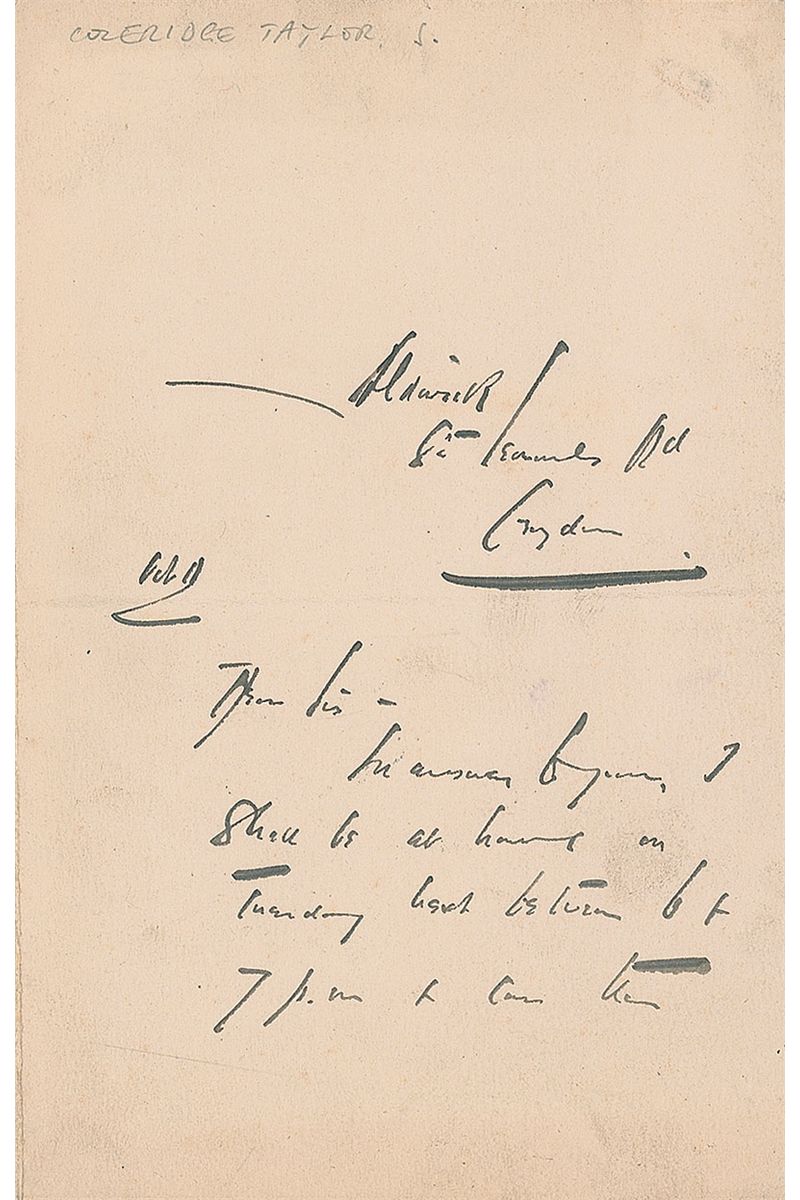 COLERIDGE TAYLOR, S.
Aldwick
St Leonards Rd
Croydon
Oct 11
Dear Sir –
In answer to yours, I
shall be at home on
Tuesday next between 6 &
7 p.m & can then